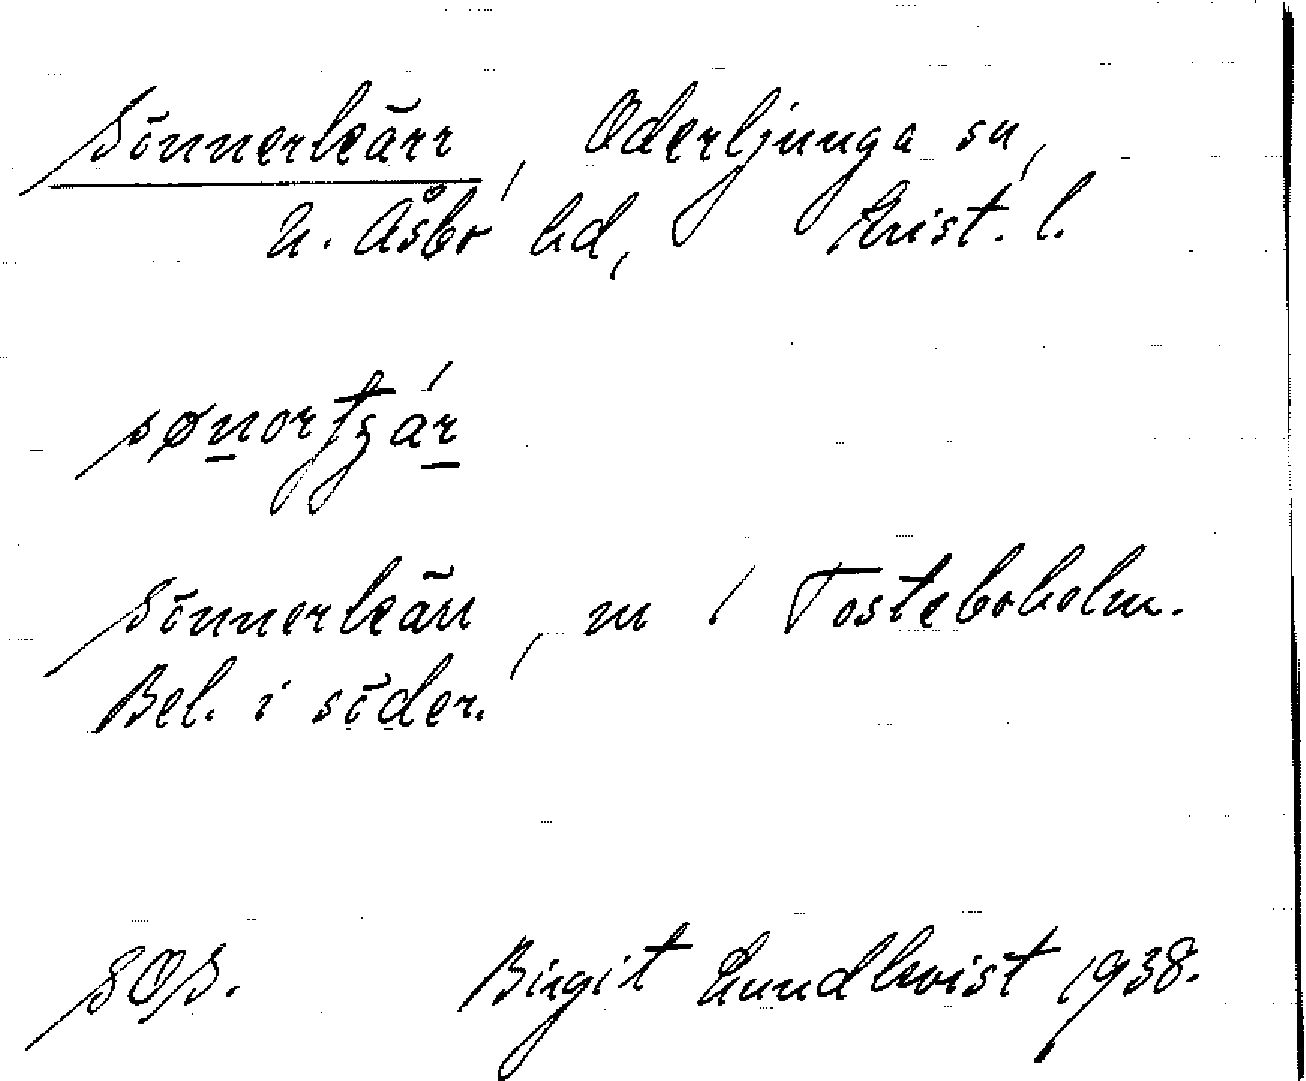 Sönnerkärr, Oderljunga sn,
N. Åsbo hd, Krist. l.
Sönnerkärr, m i Tosteboholm.
Bel. i söder.
SOS. Birgit Lundkvist 1938.